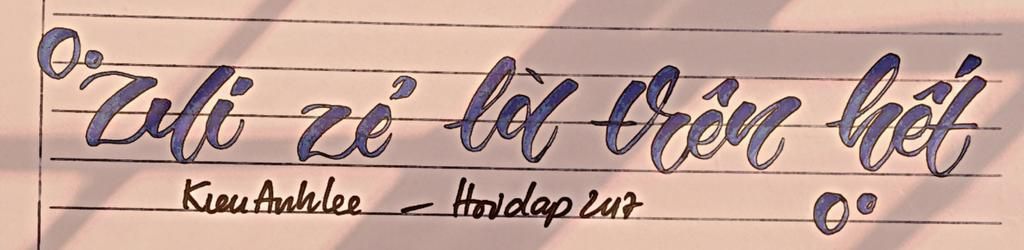 Zuli zẻ là trên hết
KieuAnhlee - Hoidap247